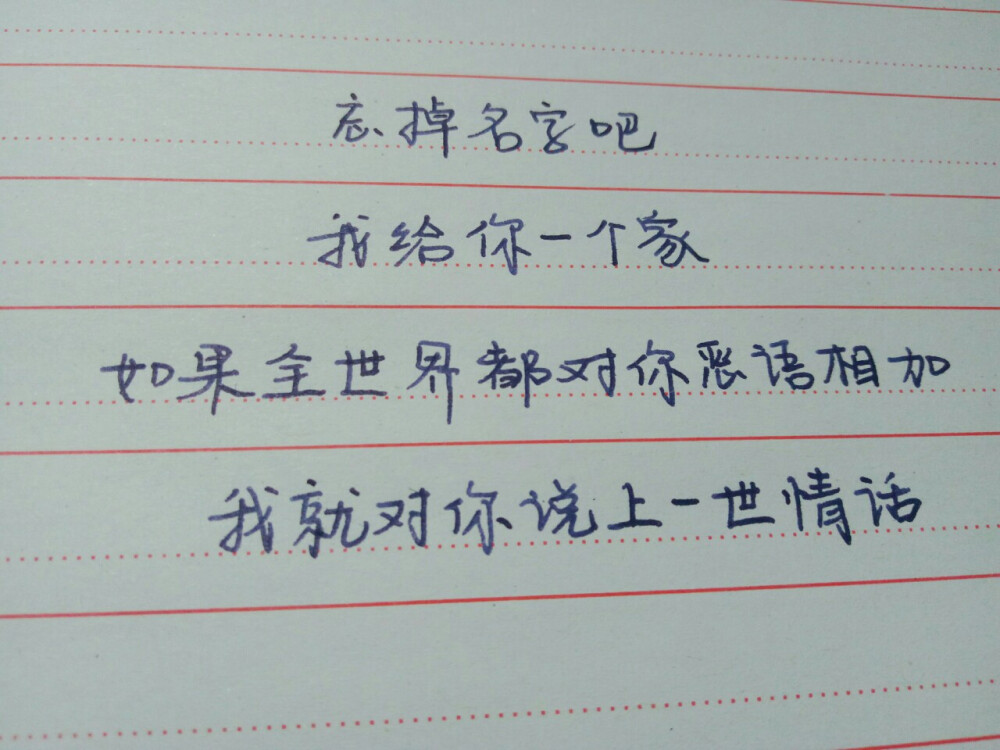 忘掉名字吧
我给你一个家
如果全世界都对你恶语相加
我就对你说上一世情话